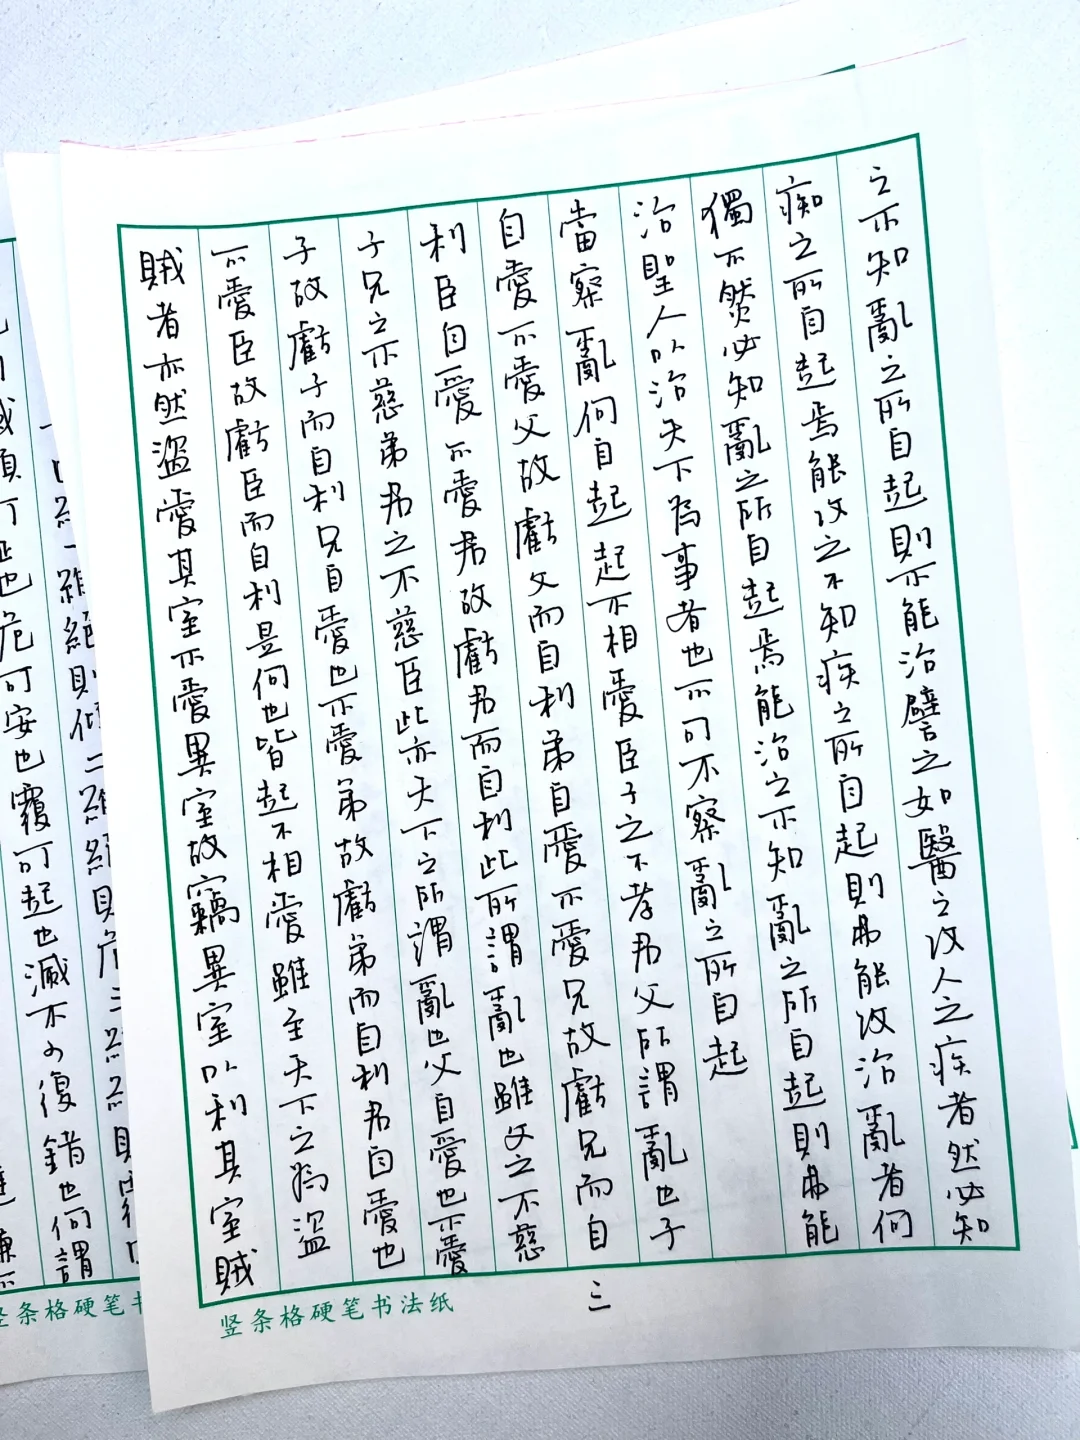 之不知亂之所自起則不能治譬之如醫之攻人之疾者然必知
痴之所自起焉能攻之不知疾之所自起則弗能攻治亂者何
獨不然必知亂之所自起焉能治之不知亂之所自起則弗能
治聖人以治天下為事者也不可不察亂之所自起
當察亂何自起起不相愛臣子之不孝君父所謂亂也子
自愛不愛父故虧父而自利弟自愛不愛兄故虧兄而自
利臣自愛不愛君故虧君而自利此所謂亂也雖父之不慈
子兄之不慈弟君之不慈臣此亦天下之所謂亂也父自愛也不愛
子故虧子而自利兄自愛也不愛弟故虧弟而自利君自愛也
不愛臣故虧臣而自利是何也皆起不相愛雖至天下之為盜
賊者亦然盜愛其室不愛異室故竊異室以利其室賊
三
竖条格硬笔书法纸
一維絕則傾二維絕則危三維絕則覆
傾可正也危可安也覆可起也滅不可復錯也何謂
条格硬笔书